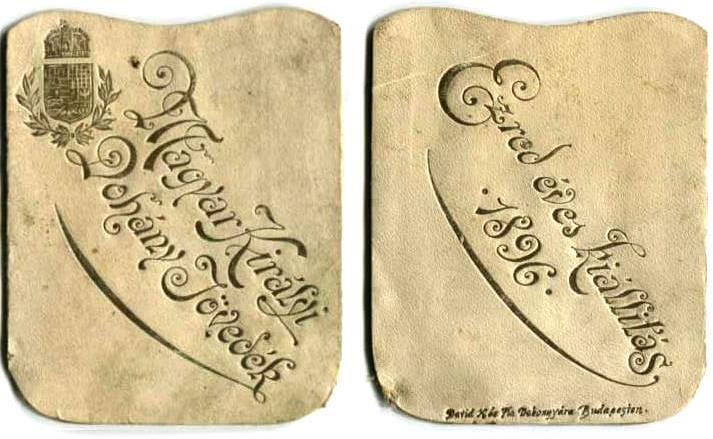 Magyar Királyi
Dohány Jövedék
Ezred éves kiállitás
1896.
David Károly Fia Dobozgyára Budapesten.